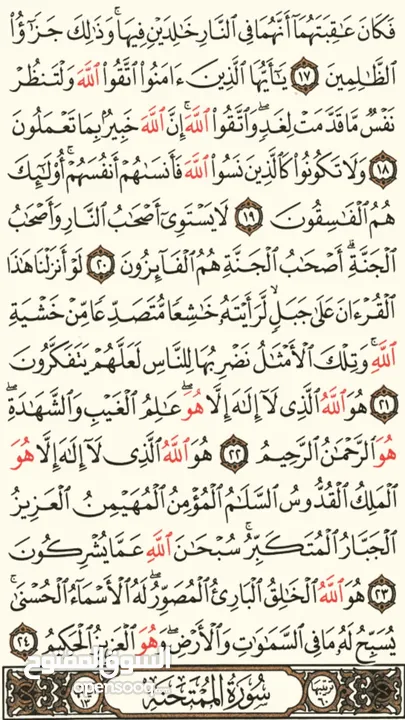 فَكَانَ عَٰقِبَتَهُمَآ أَنَّهُمَا فِي ٱلنَّارِ خَٰلِدَيۡنِ فِيهَاۚ وَذَٰلِكَ جَزَٰٓؤُاْ
ٱلظَّٰلِمِينَ ١٧ يَٰٓأَيُّهَا ٱلَّذِينَ ءَامَنُواْ ٱتَّقُواْ ٱللَّهَ وَلۡتَنظُرۡ
نَفۡسٞ مَّا قَدَّمَتۡ لِغَدٖۖ وَٱتَّقُواْ ٱللَّهَۚ إِنَّ ٱللَّهَ خَبِيرُۢ بِمَا تَعۡمَلُونَ
١٨ وَلَا تَكُونُواْ كَٱلَّذِينَ نَسُواْ ٱللَّهَ فَأَنسَىٰهُمۡ أَنفُسَهُمۡۚ أُوْلَٰٓئِكَ
هُمُ ٱلۡفَٰسِقُونَ ١٩ لَا يَسۡتَوِيٓ أَصۡحَٰبُ ٱلنَّارِ وَأَصۡحَٰبُ
ٱلۡجَنَّةِۚ أَصۡحَٰبُ ٱلۡجَنَّةِ هُمُ ٱلۡفَآئِزُونَ ٢٠ لَوۡ أَنزَلۡنَا هَٰذَا
ٱلۡقُرۡءَانَ عَلَىٰ جَبَلٖ لَّرَأَيۡتَهُۥ خَٰشِعٗا مُّتَصَدِّعٗا مِّنۡ خَشۡيَةِ
ٱللَّهِۚ وَتِلۡكَ ٱلۡأَمۡثَٰلُ نَضۡرِبُهَا لِلنَّاسِ لَعَلَّهُمۡ يَتَفَكَّرُونَ
٢١ هُوَ ٱللَّهُ ٱلَّذِي لَآ إِلَٰهَ إِلَّا هُوَۖ عَٰلِمُ ٱلۡغَيۡبِ وَٱلشَّهَٰدَةِۖ
هُوَ ٱلرَّحۡمَٰنُ ٱلرَّحِيمُ ٢٢ هُوَ ٱللَّهُ ٱلَّذِي لَآ إِلَٰهَ إِلَّا هُوَ
ٱلۡمَلِكُ ٱلۡقُدُّوسُ ٱلسَّلَٰمُ ٱلۡمُؤۡمِنُ ٱلۡمُهَيۡمِنُ ٱلۡعَزِيزُ
ٱلۡجَبَّارُ ٱلۡمُتَكَبِّرُۚ سُبۡحَٰنَ ٱللَّهِ عَمَّا يُشۡرِكُونَ
٢٣ هُوَ ٱللَّهُ ٱلۡخَٰلِقُ ٱلۡبَارِئُ ٱلۡمُصَوِّرُۖ لَهُ ٱلۡأَسۡمَآءُ ٱلۡحُسۡنَىٰۚ
يُسَبِّحُ لَهُۥ مَا فِي ٱلسَّمَٰوَٰتِ وَٱلۡأَرۡضِۖ وَهُوَ ٱلۡعَزِيزُ ٱلۡحَكِيمُ ٢٤
سُورَةُ ٱلۡمُمۡتَحَنَةِ
ترتيبها ٦٠
آياتها ١٣
السوق المفتوح
opensooq.com